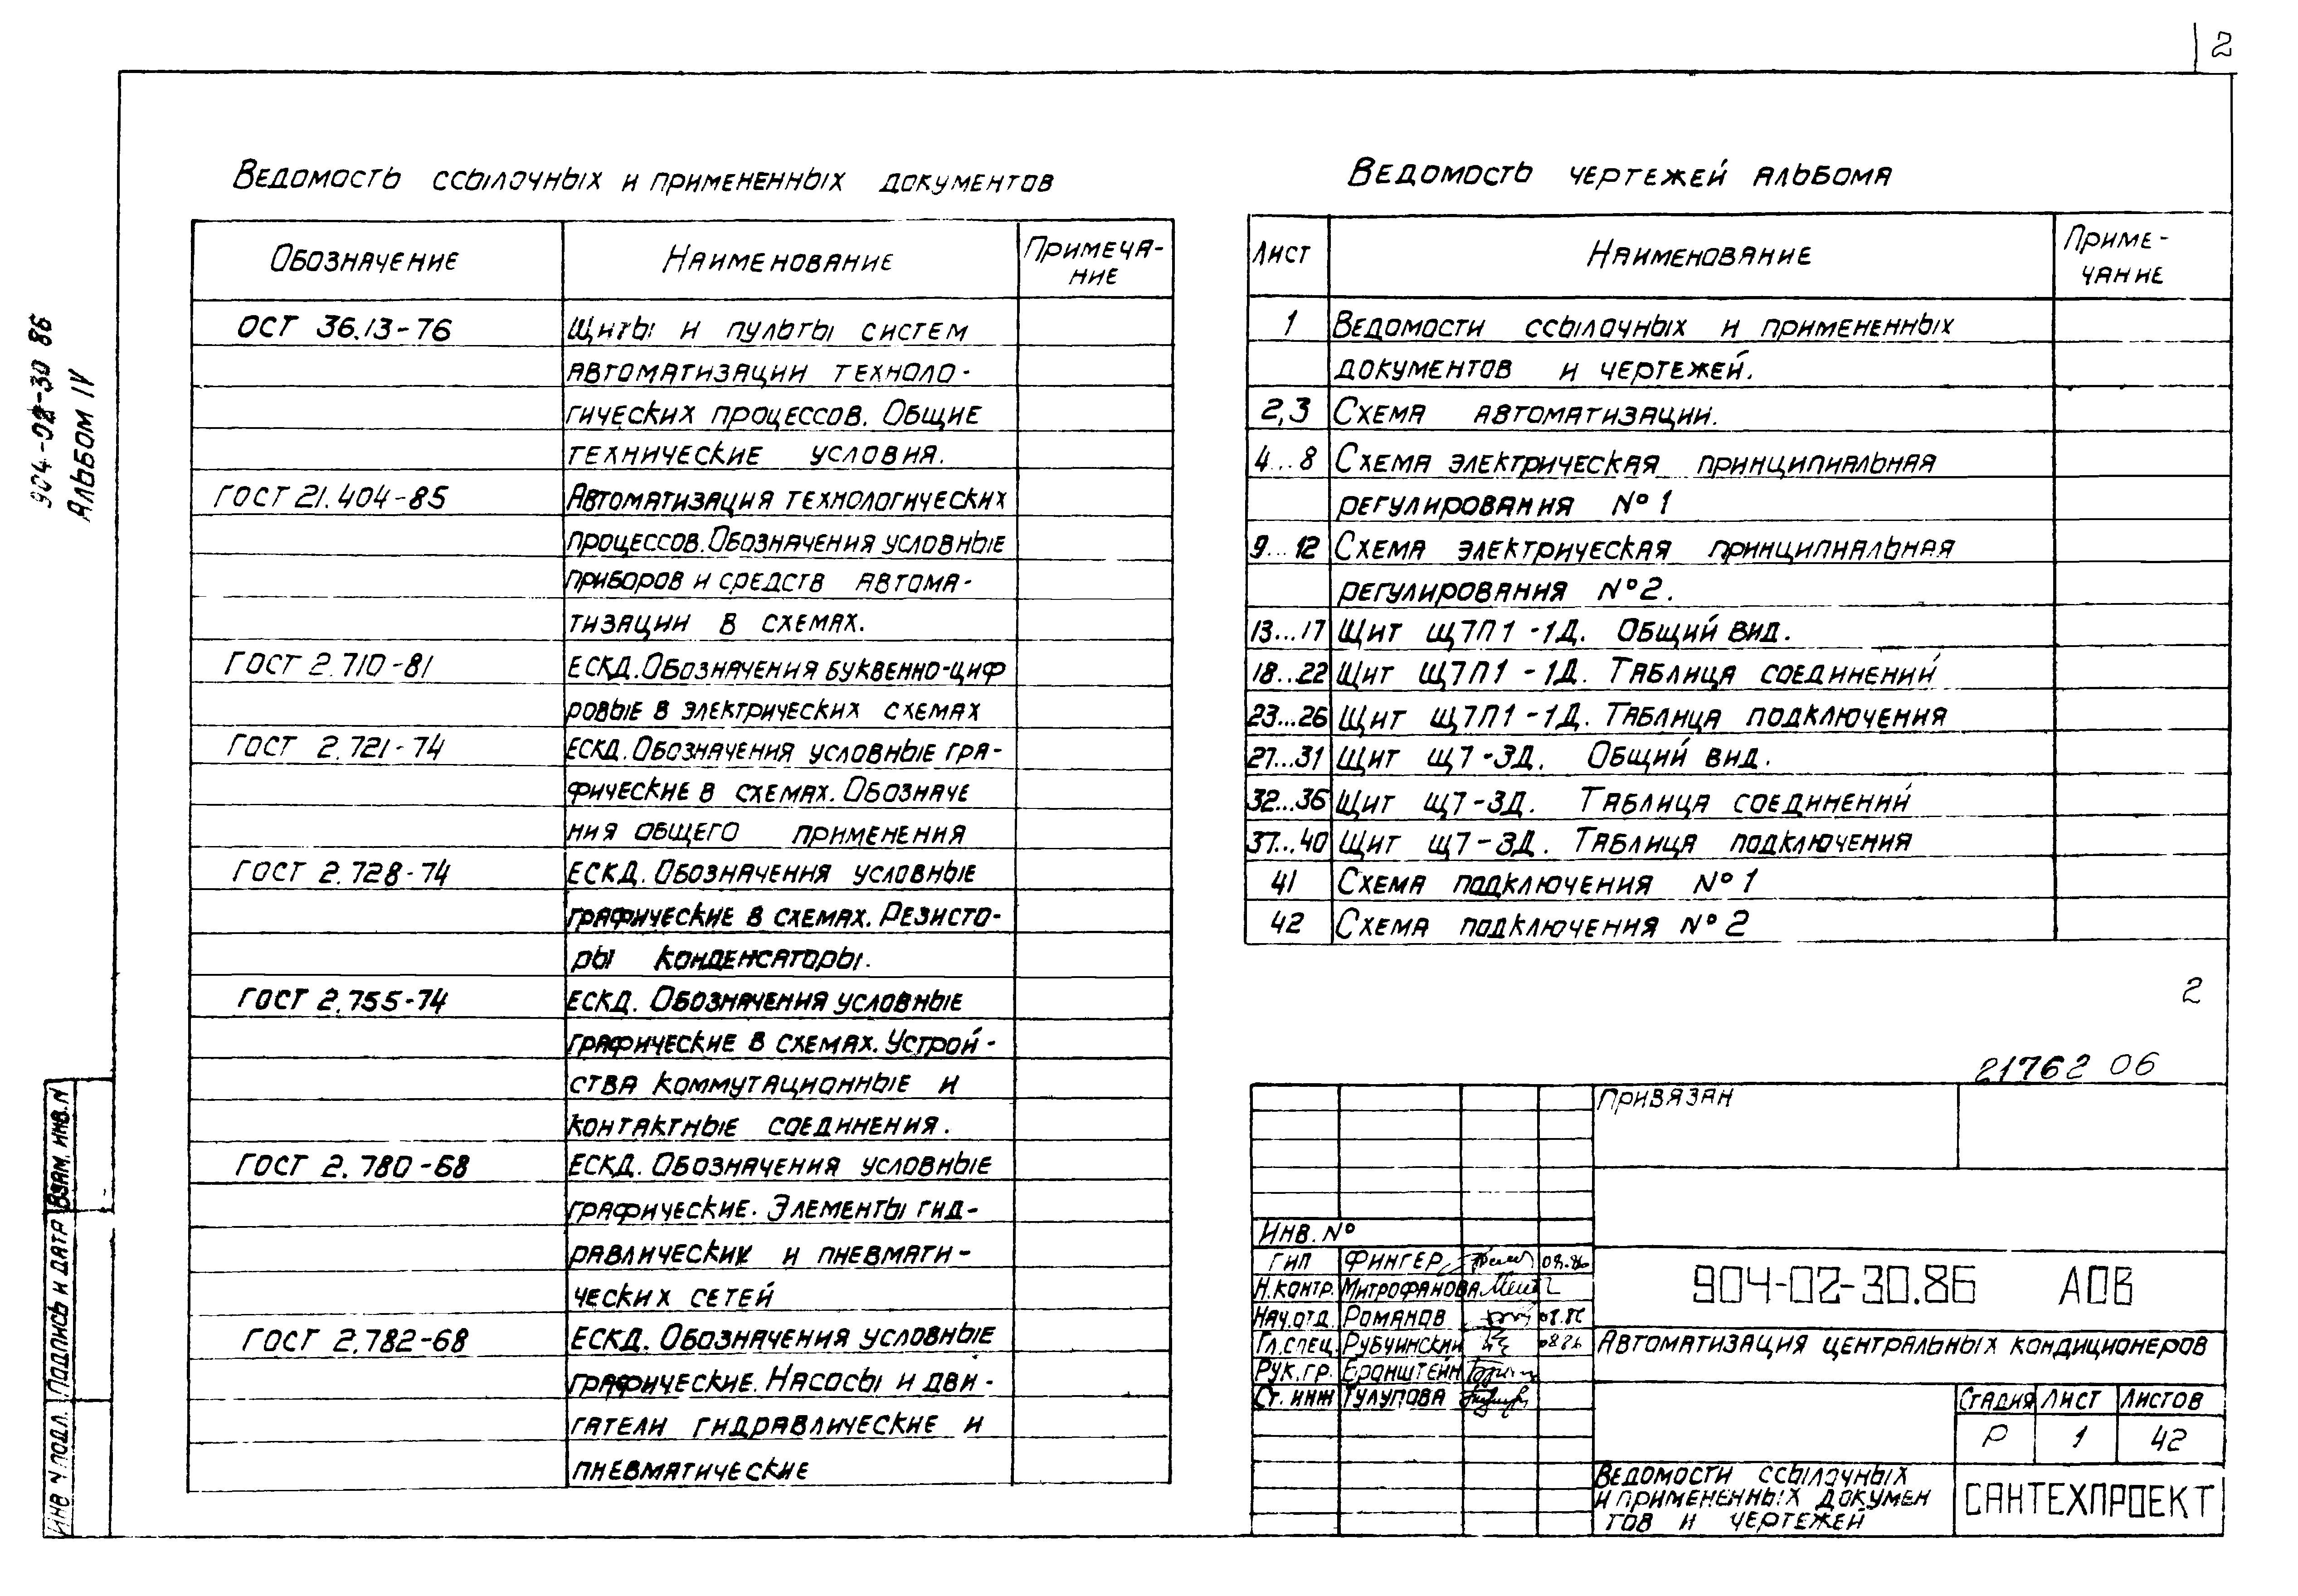 2
904-02-30 86
Альбом IV
Ведомость ссылочных и примененных документов
Обозначение Наименование Примеча-
ние
ОСТ 36.13-76 Щиты и пульты систем
автоматизации техноло-
гических процессов. Общие
технические условия.
ГОСТ 21.404-85 Автоматизация технологических
процессов. Обозначения условные
приборов и средств автома-
тизации в схемах.
ГОСТ 2.710-81 ЕСКД. Обозначения буквенно-циф
ровые в электрических схемах
ГОСТ 2.721-74 ЕСКД. Обозначения условные гра-
фические в схемах. Обозначе
ния общего применения
ГОСТ 2.728-74 ЕСКД. Обозначения условные
графические в схемах. Резисто-
ры конденсаторы.
ГОСТ 2.755-74 ЕСКД. Обозначения условные
графические в схемах. Устрой-
ства коммутационные и
контактные соединения.
ГОСТ 2.780-68 ЕСКД. Обозначения условные
графические. Элементы гид-
равлических и пневмати-
ческих сетей
ГОСТ 2.782-68 ЕСКД. Обозначения условные
графические. Насосы и дви-
гатели гидравлические и
пневматические
Ведомость чертежей альбома
Лист Наименование Приме-
чание
1 Ведомости ссылочных и примененных
документов и чертежей.
2,3 Схема автоматизации.
4...8 Схема электрическая принципиальная
регулирования №1
9...12 Схема электрическая принципиальная
регулирования №2.
13...17 Щит Щ7П1-1Д. Общий вид.
18...22 Щит Щ7П1-1Д. Таблица соединений
23...26 Щит Щ7П1-1Д. Таблица подключения
27...31 Щит Щ7-3Д. Общий вид.
32...36 Щит Щ7-3Д. Таблица соединений
37...40 Щит Щ7-3Д. Таблица подключения
41 Схема подключения №1
42 Схема подключения №2
2
21762 06
Привязан
Инв. №
ГИП Фингер 08.86
Н.контр. Митрофанова
Нач.отд. Романов 08.86
Гл.спец. Рубчинский 08 86
Рук.гр. Бронштейн
Ст. инж Тулупова
904-02-30.86 АОВ
Автоматизация центральных кондиционеров
Стадия Лист Листов
Р 1 42
Ведомости ссылочных
и примененных докумен
тов и чертежей
САНТЕХПРОЕКТ
Взам. инв. N
Подпись и дата
Инв N подл.